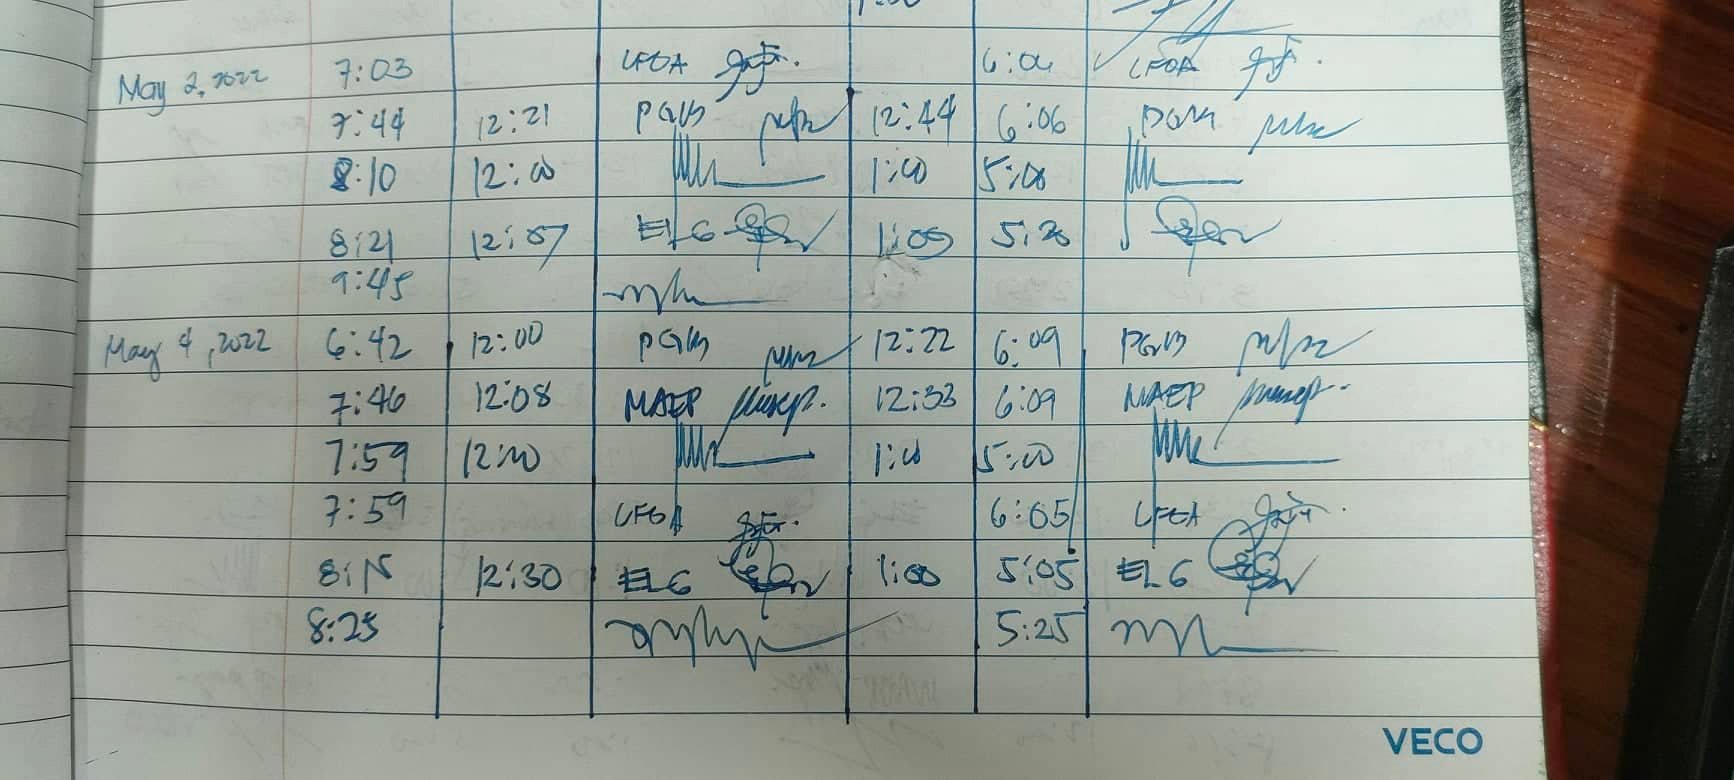 May 2, 2022 7:03 LFOA 6:04 LFOA
7:44 12:21 PGM 12:44 6:06 PGM
8:10 12:00 1:00 5:00
8:21 12:07 ELG 1:00 5:20
9:45
May 4, 2022 6:42 12:00 PGM 12:22 6:09 PGM
7:46 12:08 MAEP 12:33 6:09 MAEP
7:59 12:00 1:00 5:00
7:59 LFOA 6:05 LFOA
8:15 12:30 ELG 1:00 5:05 ELG
8:25 5:25
VECO